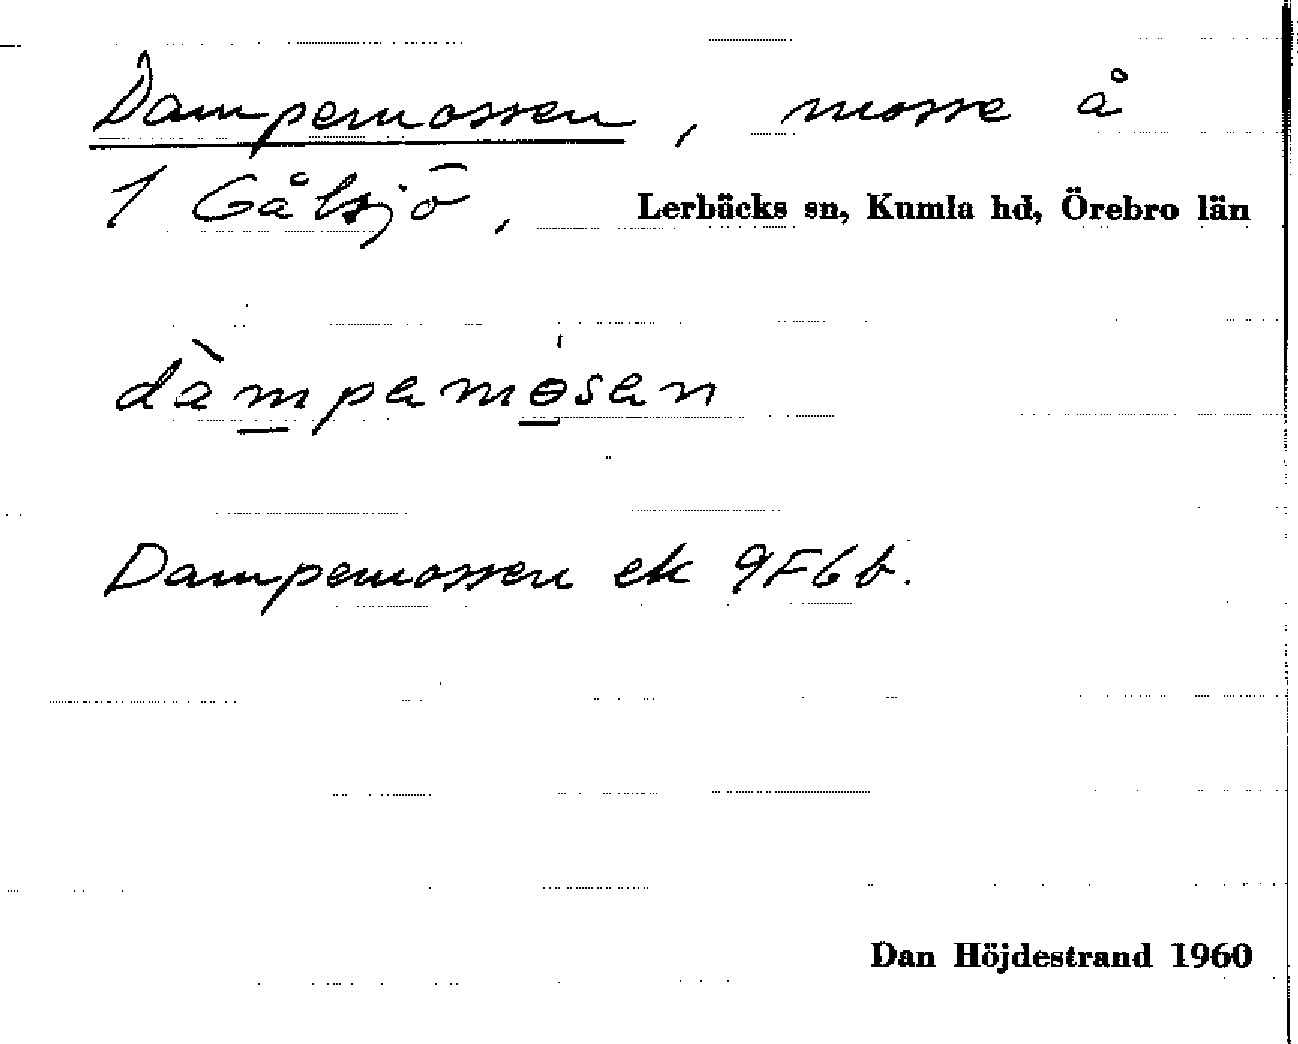 Dampemossen, mosse å
1 Gålsjö, Lerbäcks sn, Kumla hd, Örebro län
dàmpamɵ́san
Dampemossen ek 9F6b.
Dan Höjdestrand 1960